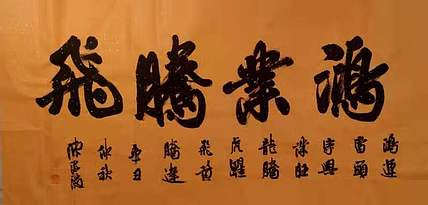 鴻業騰飛
鴻運
當頭
興
業旺
龍騰
虎躍
飛黃
騰達
仲秋